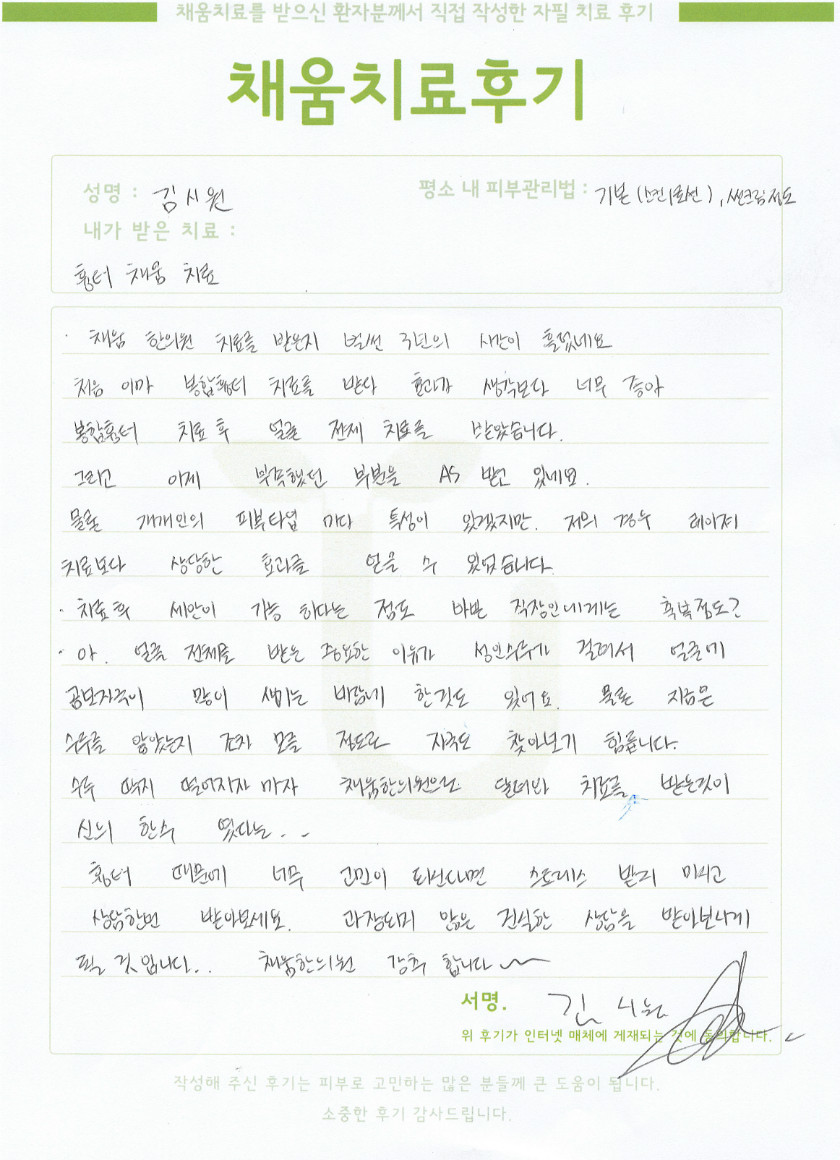 채움치료를 받으신 환자분께서 직접 작성한 자필 치료 후기
채움치료후기
성명 : 김시원
평소 내 피부관리법 : 기본 (스킨/로션), 썬크림정도
내가 받은 치료 :
흉터 채움 치료
· 채움 한의원 치료를 받은지 벌써 3년의 시간이 흘렀네요
처음 이마 봉합흉터 치료를 받다 효과가 생각보다 너무 좋아
봉합흉터 치료 후 얼굴 전체 치료를 받았습니다.
그리고 이제 부족했던 부분을 AS 받고 있네요.
물론 개개인의 피부타입 마다 특성이 있겠지만. 저의 경우 레이저
치료보다 상당한 효과를 얻을 수 있었습니다.
· 치료후 세안이 가능 하다는 점도 바쁜 직장인에게는 흑복점도?
· 아. 얼굴 전체를 받은 중요한 이유가 성인수두가 걸려서 얼굴에
곰보자국이 많이 생기는 바람에 한것도 있어요. 물론 지금은
수두를 앓았는지 조차 모를 정도로 자국도 찾아보기 힘듭니다.
수두 딱지 떨어지자 마자 채움한의원으로 달려와 치료를 받은것이
신의 한수 였다는..
흉터 때문에 너무 고민이 되신다면 스트레스 받지 마시고
상담한번 받아보세요. 과장되지 않은 진실한 상담을 받아보시게
될 것입니다.. 채움한의원 강추 합니다~
서명. 김시원
위 후기가 인터넷 매체에 게재되는 것에 동의합니다.
작성해 주신 후기는 피부로 고민하는 많은 분들께 큰 도움이 됩니다.
소중한 후기 감사드립니다.